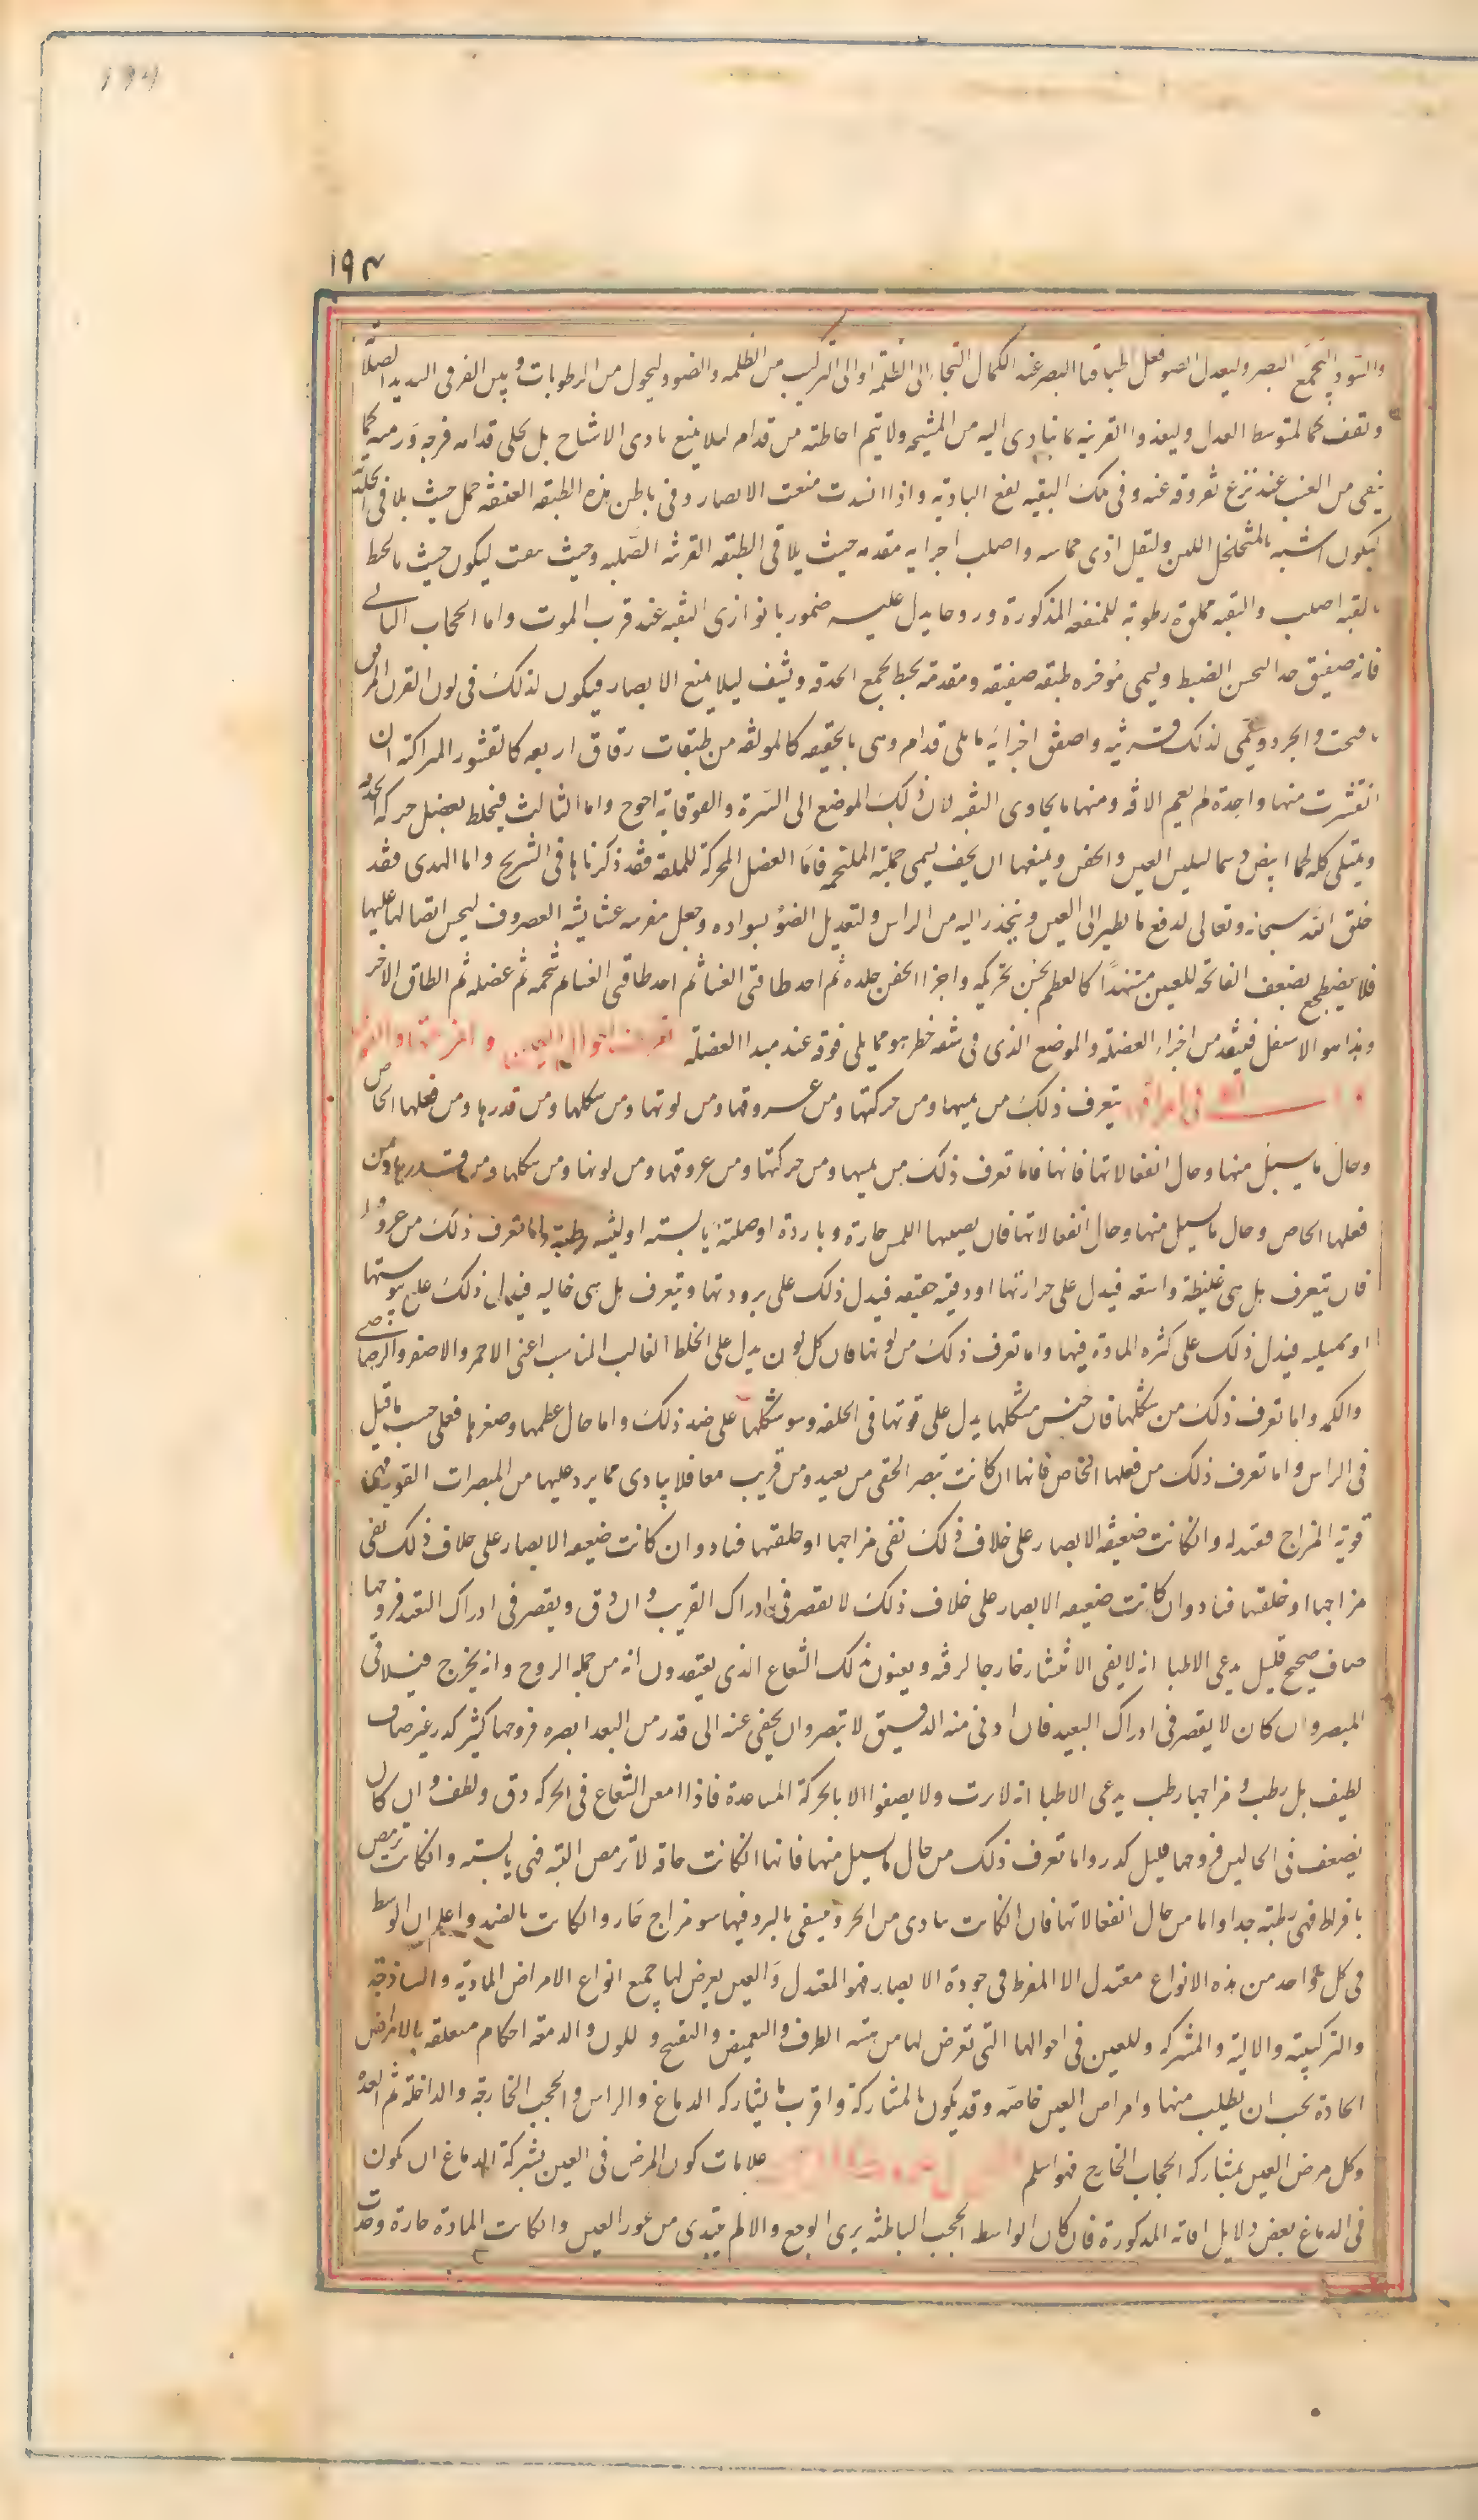 ١٩٣
والسواد ليجمع البصر وليعدل الضو فعل اطباقنا البصر عند الكلال التجاء الى الظلمة او الى التركيب من الظلمه والضو وليحول من الرطوبات وبين القرنى الشديد الصلابة
وتقف كالمتوسط العدل وليغذوا القرنيه بما يتادى اليه من المشيميه ولا يتم احاطته من قدام ليلا يمنع تادى الاشباح بل يخلى قدامه فرجه وثقبه كما
يبقى من العنب عند نزع ثفروقه عنه وفى تلك الثقبه يقع التاديه واذا انسدت منعت الابصار وفى باطن هذه الطبقه العنبيه خمل حيث يلاقى الجليديه
ليكون اشبه بالمتخلخل اللين وليقل اذى مماسته واصلب اجزايه مقدمه حيث يلاقى الطبقه القرنيه الصلبه وحيث يثقب ليكون حيث يحيط
بالثقبه اصلب والثقبه مملوة رطوبة للمنفعه المذكورة وروحا يدل عليه ضمور ما يوازى الثقبه عند قرب الموت واما الحجاب الثانى
فانه صفيق جدا ليحسن الضبط ويسمى مؤخره طبقه صلبه صفيقه ومقدمه يحيط بجميع الحدقه ويشف ليلا يمنع الابصار فيكون لذلك فى لون القرن المرقق
بالنحت والجرد ويسمى لذلك قرنيه واصفق اجزايه ما يلى قدام وهى بالحقيقه كالمولفه من طبقات رقاق اربعه كالقشور المتراكبه ان
انقشرت منها واحدة لم يعم الافه ومنها ما يحاذى الثقبه لان ذلك الموضع الى السترة والوقاية احوج واما الثالث فيختلط بعضل حركه الحدقه
ويمتلى كله لحما ابيض دسما ليلين العين والجفن ويمنعها ان يجف ليسمى جملته الملتحمه فاما العضل المحركة للمقلة فقد ذكرناها فى التشريح واما الهدب فقد
خلق الله سبحانه وتعالى لدفع ما يطير الى العين وينحدر اليه من الراس ولتعديل الضوء بسواده وجعل مغرسه غشا يشبه الغضروف ليحسن انتصابها عليها
فلا يضطجع لضعف المغرس وليكون للعضلة الفاتحة للعين مستندا كالعظم يحسن تحريكه واجزا الجفن جلده ثم احد طاقى الغشا ثم شحمه ثم عضله ثم الطاق الاخر
وهذا هو الاعلى واما الاسفل فيفقد من اجزاء العضلة والموضع الذى فى شقه خطر هو مما يلى موقه عند مبدا العضلة تعرف احوال العين وامزجتها والقول
فى امراضها يتعرف ذلك من لمسها ومن حركتها ومن عروقها ومن لونها ومن شكلها ومن قدرها ومن فعلها الخاص
وحال ما يسيل منها وحال انفعالاتها فانها فاما تعرف ذلك من لمسها ومن حركتها ومن عروقها ومن لونها ومن شكلها ومن قدرها ومن
فعلها الخاص وحال ما يسيل منها وحال انفعالاتها فان يصيبها اللمس حارة وباردة او صلبة يابسة او لينه رطبة واما تعرف ذلك من عروقها
فان يتعرف بل هى غليظة واسعه فيدل على حرارتها او دقيقه خفيه فيدل ذلك على برودتها ويتعرف بل هى خاليه فيدل ذلك على يبوستها
او ممتليه فيدل ذلك على كثره المادة فيها واما تعرف ذلك من لونها فان كل لون يدل على الخلط الغالب المناسب اعنى الاحمر والاصفر والرصاصى
والكمد واما تعرف ذلك من شكلها فان حسن شكلها يدل على قوتها فى الخلقه وسو شكلها على ضد ذلك واما حال عظمها وصغرها فعلى حسب ما قيل
فى الراس واما تعرف ذلك من فعلها الخاص فانها ان كانت تبصر الخفى من بعيد ومن قريب معا فلا يتادى مما يرد عليها من المبصرات القويه فهى
قوية المزاج معتدله وان كانت ضعيفة الابصار على خلاف ذلك ففى مزاجها او خلقتها فساد وان كانت ضعيفه الابصار على خلاف ذلك ففى
مزاجها او خلقتها فساد وان كانت ضعيفه الابصار على خلاف ذلك لا يقصر فى ادراك القريب وان دق ويقصر فى ادراك البعيد فروحها
صاف صحيح قليل يدعى الاطبا انه لا يفى الانتشار خارجا لرقته ويعنون بذلك الشعاع الذى يعتقدون انه من جمله الروح وانه يخرج فيلاقى
المبصر وان كان لا يقصر فى ادراك البعيد فان ادنى منه الدقيق لا تبصر وان يخفى عنه الى قدر من البعد ابصره فروحها كثير كدر غير صاف
لطيف بل رطب ومزاجها رطب يدعى الاطبا انه لا يرق ولا يصفوا الا بالحركة المتباعدة فاذا امعن الشعاع فى الحركه دق ولطف وان كان
يضعف فى الحالين فروحها قليل كدر واما تعرف ذلك من حال ما يسيل منها فانها ان كانت جافه لا ترمص البته فهى يابسه وان كانت ترمص
بافراط فهى رطبة جدا واما من حال انفعالاتها فان ان كانت تتادى من الحر وتستفى بالبرد فيها سو مزاج حار وان كانت بالضد واعلم ان الوسط
فى كل واحد من هذه الانواع معتدل الا المفرط فى جودة الابصار فهو المعتدل والعين يعرض لها جميع انواع الامراض المادية والساذجة
والتركيبية والالية والمشتركه وللعين فى احوالها التى تعرض لها من هيئه الطرف والتغميض والتفتيح واللون والدمعه احكام متعلقه بالامراض
الحادة يجب ان يطلب منها وامراض العين خاصه وقد يكون بالمشاركة واقرب ما يشاركه الدماغ والراس والحجب الخارجة والداخلة ثم المعدة
وكل مرض العين بمشاركه الحجاب الخارج فهو اسلم علامات كون المرض فى العين بشركة الدماغ ان تكون
فى الدماغ بعض دلايل افاته المذكورة فان كان الواسط الحجب الباطنه يرى الوجع والالم يبتدى من غور العين وان كانت المادة حارة وجدت